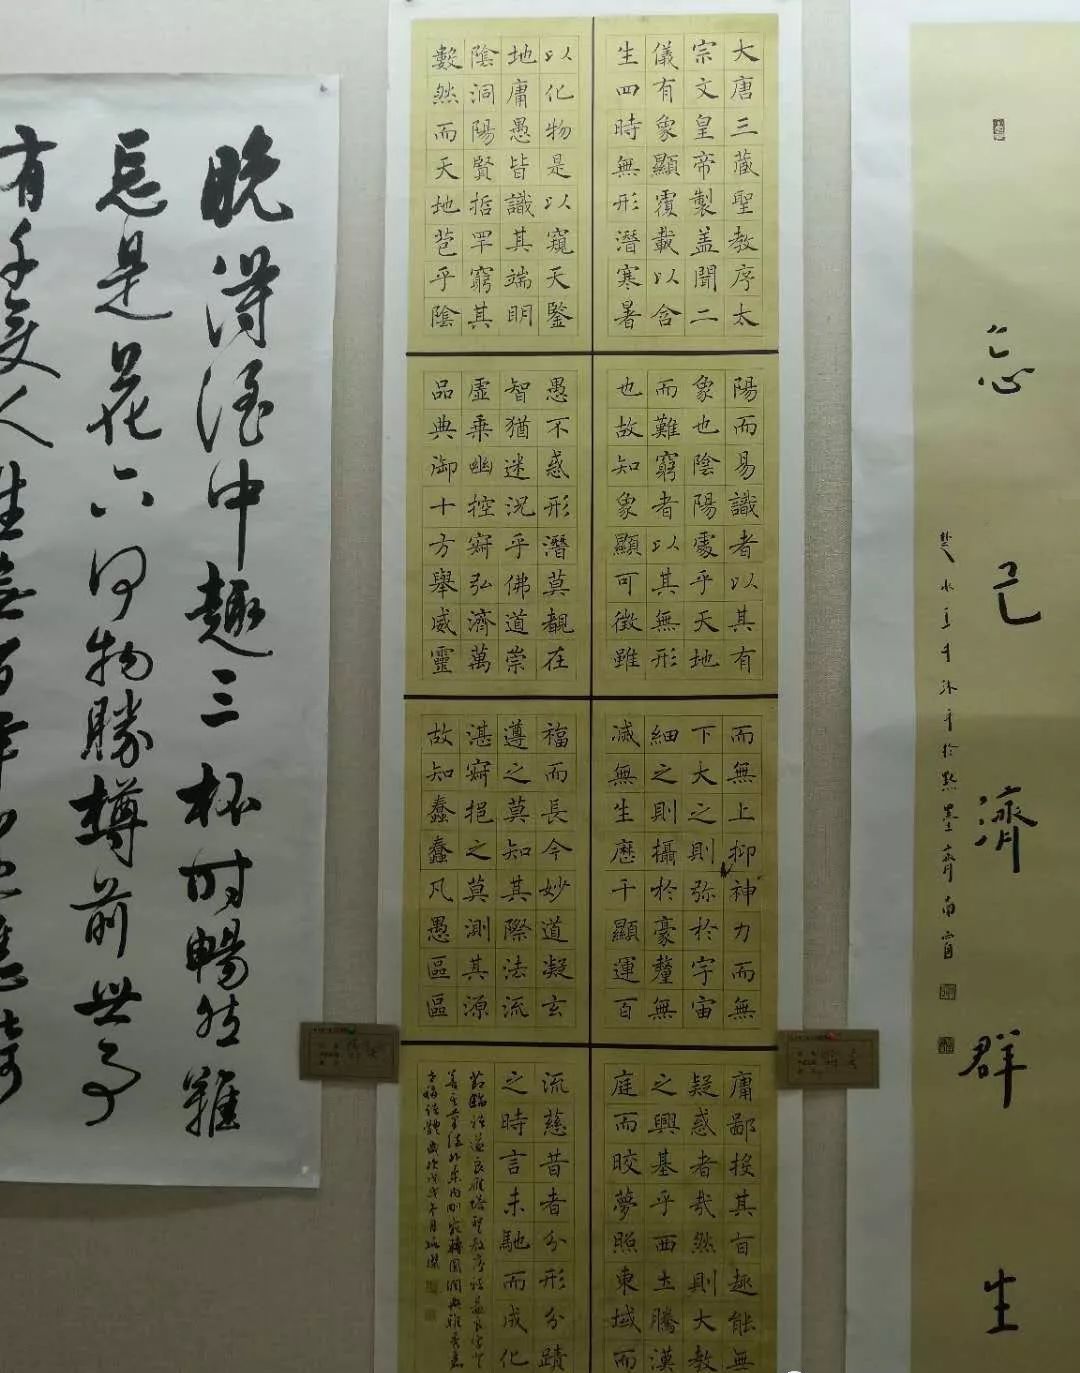 忘己濟群生
大唐三藏聖教序太
宗文皇帝製蓋聞二
儀有象顯覆載以含
生四時無形潛寒暑
以化物是以窺天鑒
地庸愚皆識其端明
陰洞陽賢哲罕窮其
數然而天地苞乎陰
陽而易識者以其有
象也陰陽處乎天地
而難窮者以其無形
也故知象顯可徵雖
愚不惑形潛莫覩在
智猶迷況乎佛道崇
虛乘幽控寂弘濟萬
品典御十方舉威靈
而無上抑神力而無
下大之則弥於宇宙
細之則攝於豪釐無
滅無生歷千顯運百
福而長今妙道凝玄
遵之莫知其際法流
湛寂挹之莫測其源
故知蠢蠢凡愚區區
庸鄙投其旨趣能無
疑惑者哉然則大教
之興基乎西土騰漢
庭而皎夢照東域而
流慈昔者分形分蹟
之時言未馳而成化
臨褚遂良雁塔聖教序
晚得酒中趣三杯时暢然難
忘是花下何物勝樽前世事
有千變人生無百年唯應